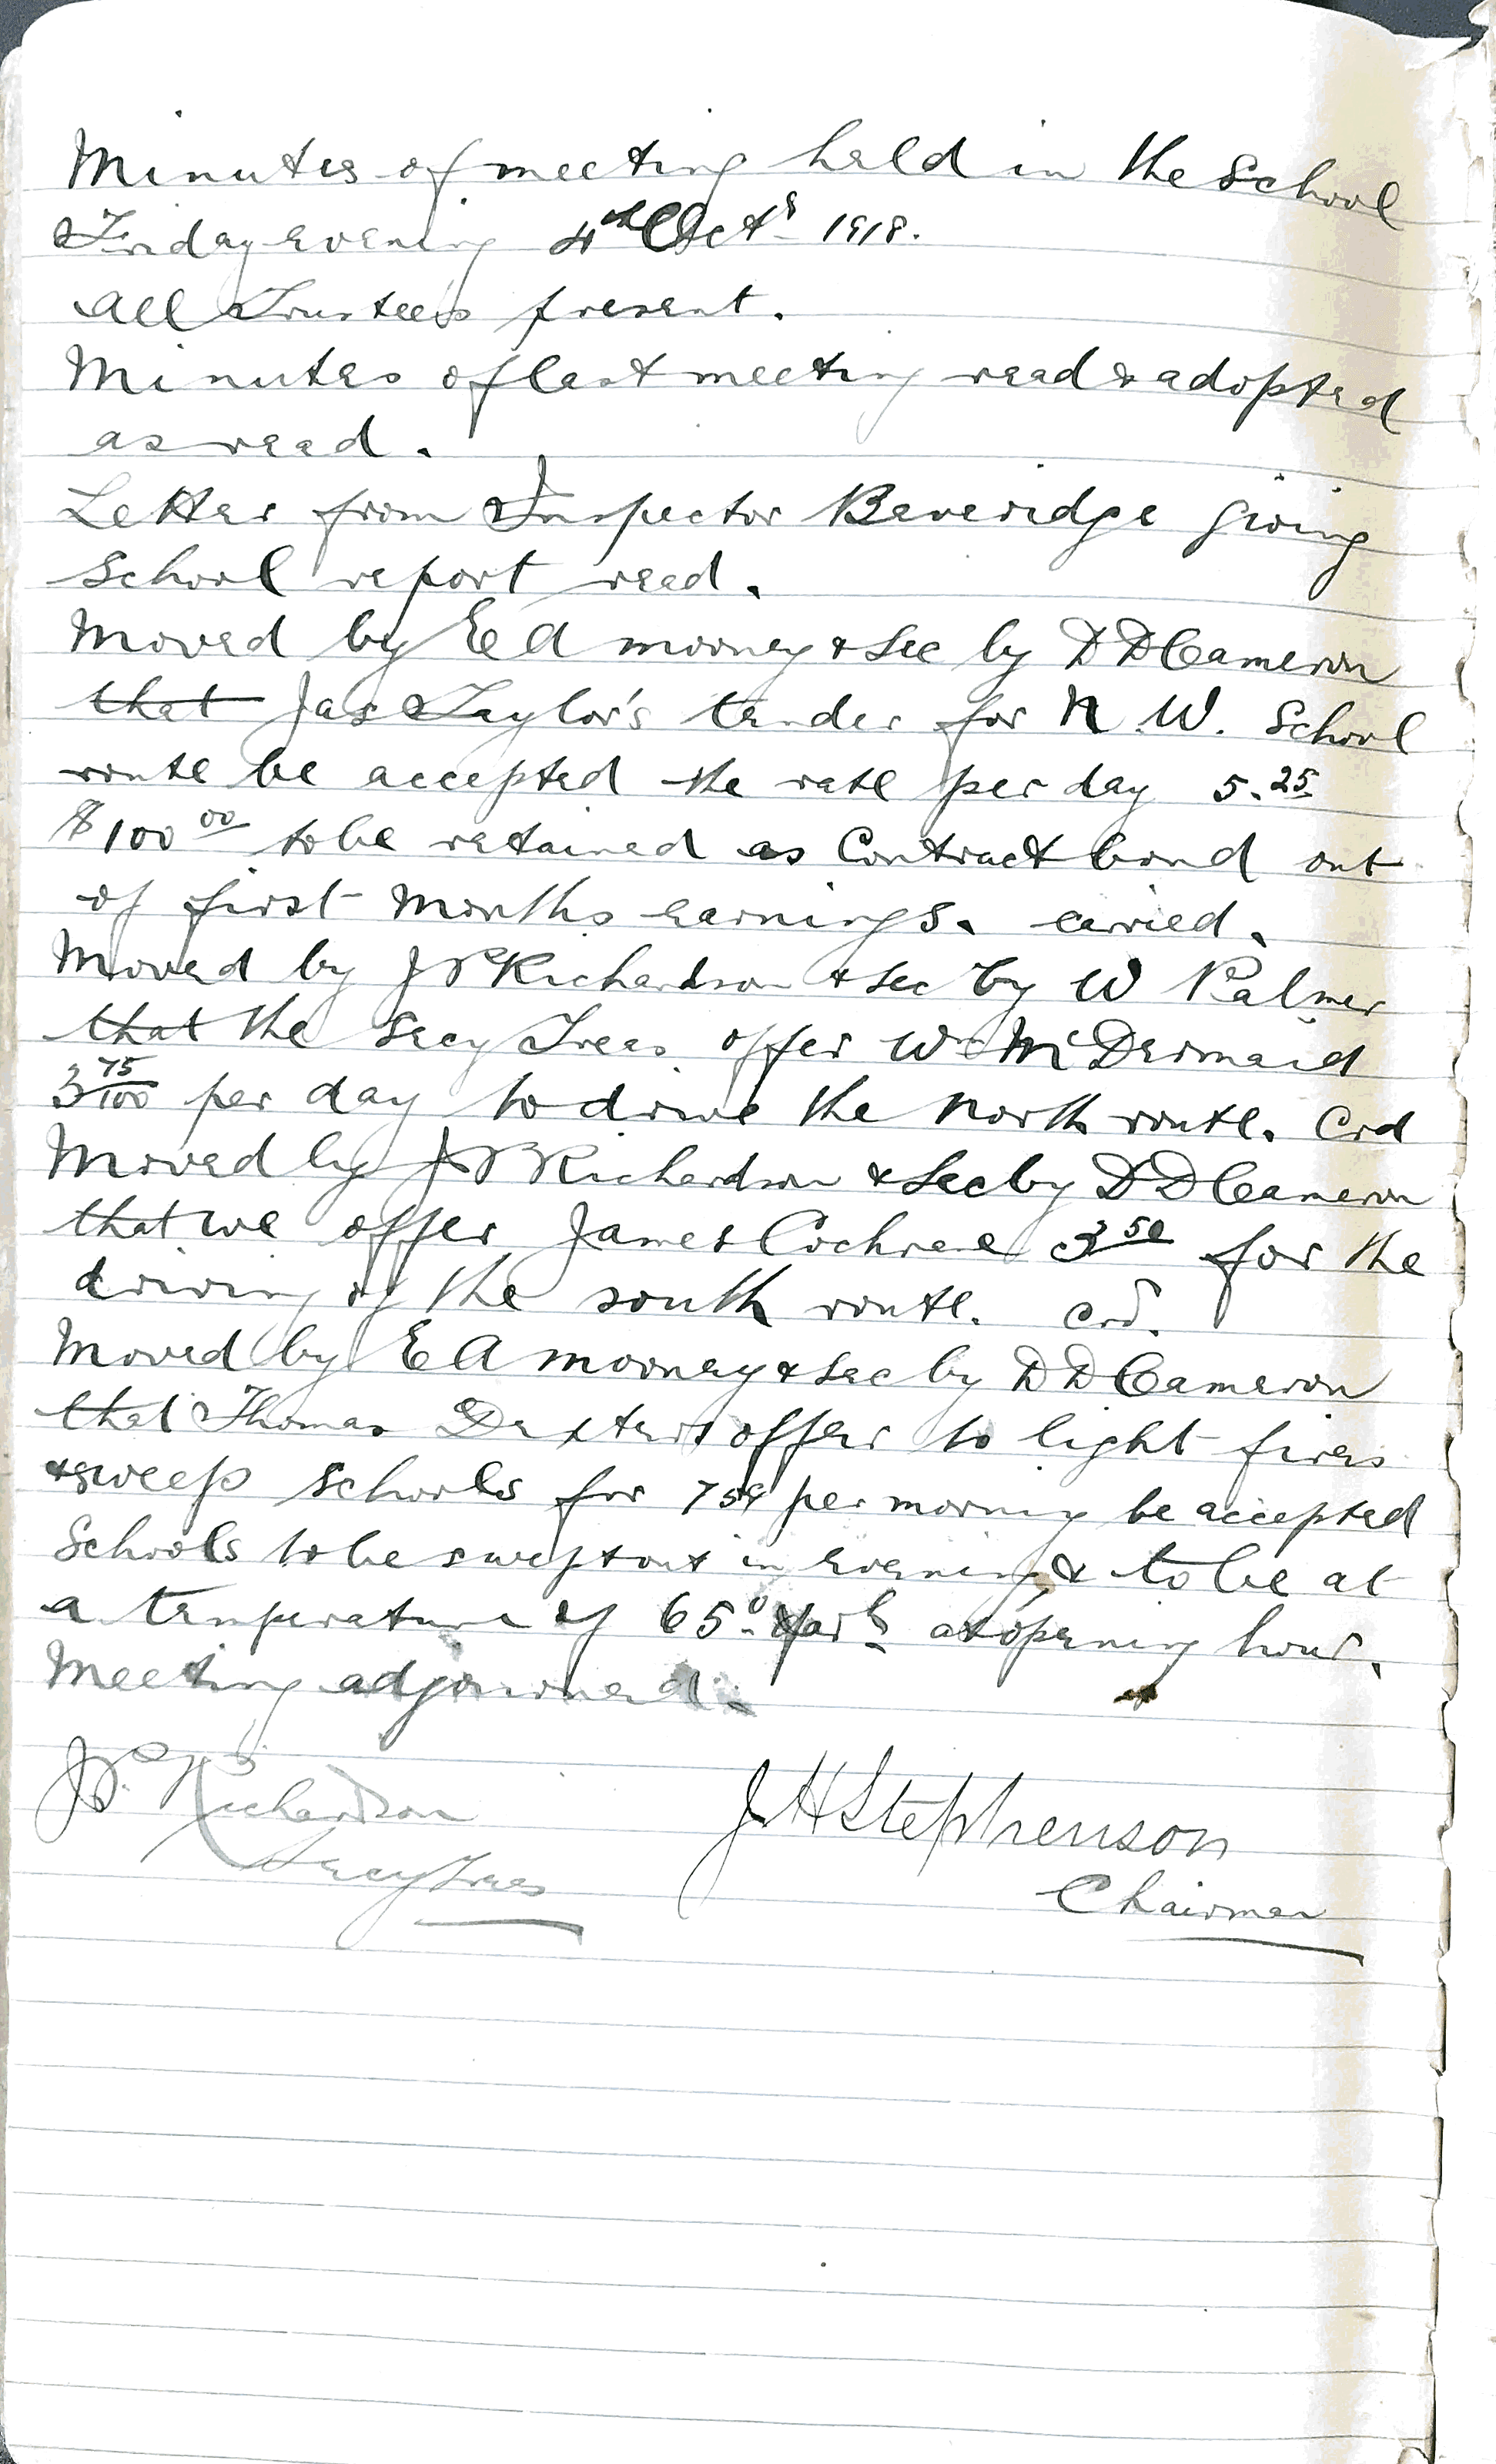 Minutes of meeting held in the School
Friday evening 4th Octr 1918.
All Trustees present.
Minutes of last meeting read & adopted
as read.
Letter from Inspector Beveridge giving
School report read.
Moved by E A Mooney & Sec by D D Cameron
that Jas Taylor's tender for N.W. School
route be accepted the rate per day 5.25
$100 00 to be retained as Contract bond out
of first Months earnings. carried.
Moved by J P Richardson & Sec by W Palmer
that the Secy Treas offer Wm McDermaid
3 75/100 per day to drive the North route. Crd
Moved by J P Richardson & Sec by D D Cameron
that we offer James Cochrane 3 50 for the
driving of the south route. Crd.
Moved by E A Mooney & Sec by D D Cameron
that Thomas Dexters offer to light fires
& sweep schools for 75¢ per morning be accepted
Schools to be swept out in evening & to be at
a temperature of 65° Farh at opening hour.
Meeting adjourned.
J P. Richardson
Secy Treas
J H Stephenson
Chairman